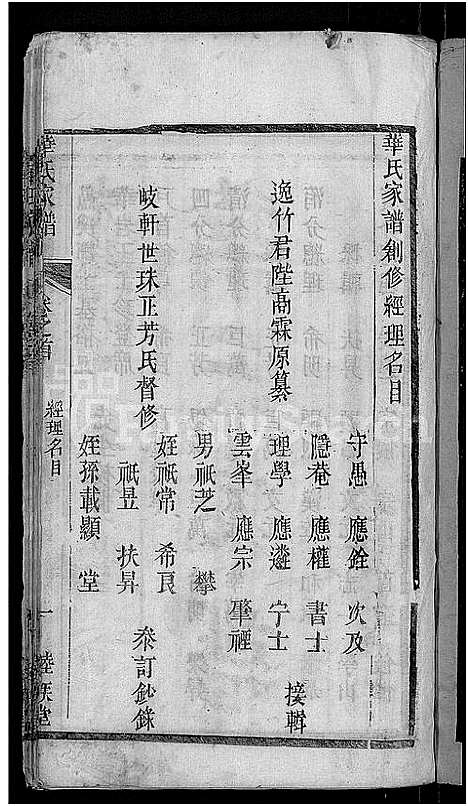 華氏家譜創修經理名目
守愚 應銓 次及
隱菴 應權 書士
逸竹君陛高霖原纂 理學 應遴 宁士 接輯
雲峯 應宗 肇禋
男祇芝 攀
岐軒世珠正芳氏督修 姪祇常 希良 叅訂鈔錄
祇昱 扶昇
姪孫載顯 堂
華氏家譜 卷之首 經理名目 一 睦族堂